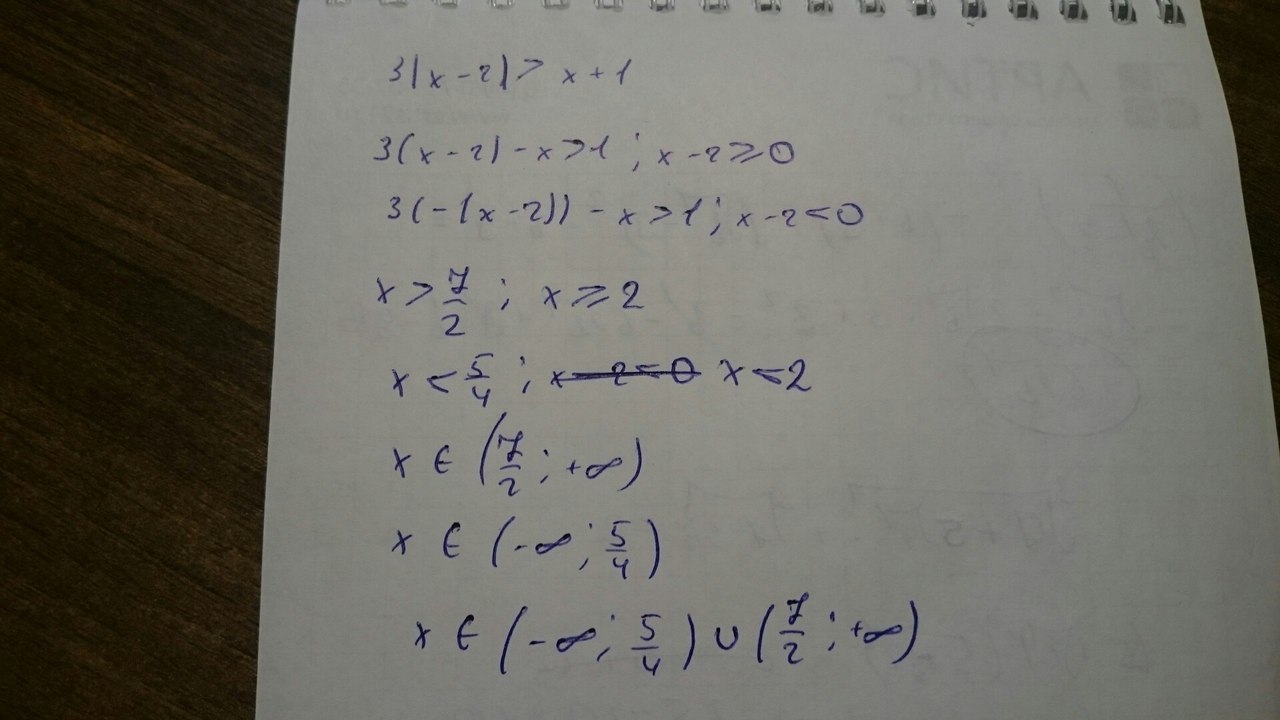 3|x-2|> x+1
3(x-2)-x>1; x-2⩾0
3(-(x-2))-x>1; x-2<0
x>7/2; x⩾2
x<5/4; x<2
x ∈ (7/2; +∞)
x ∈ (-∞; 5/4)
x ∈ (-∞; 5/4) ∪ (7/2; +∞)